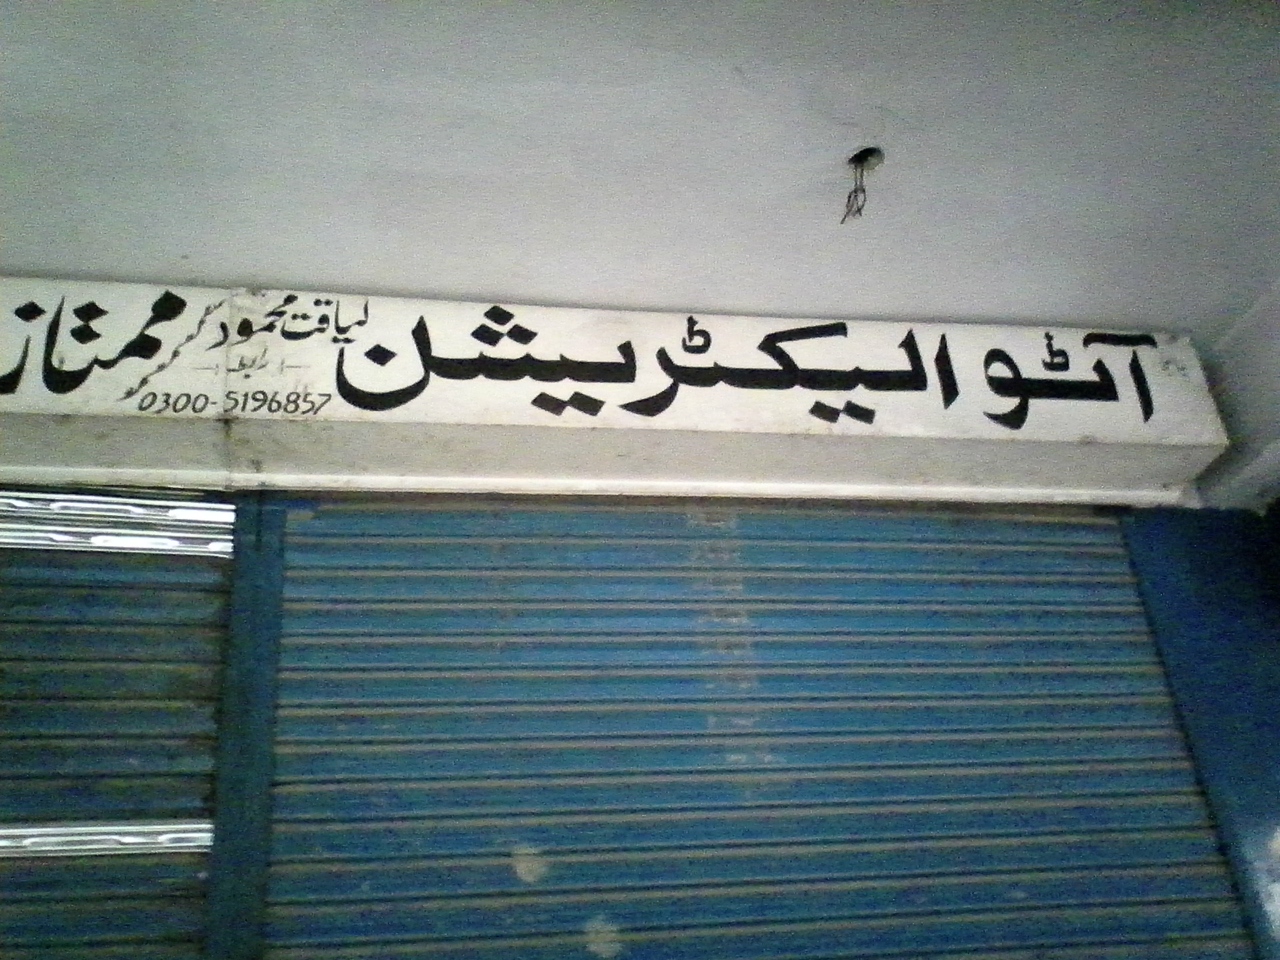 آٹو الیکٹریشن
لیاقت محمود
رابطہ
0300-5196857
ممتاز